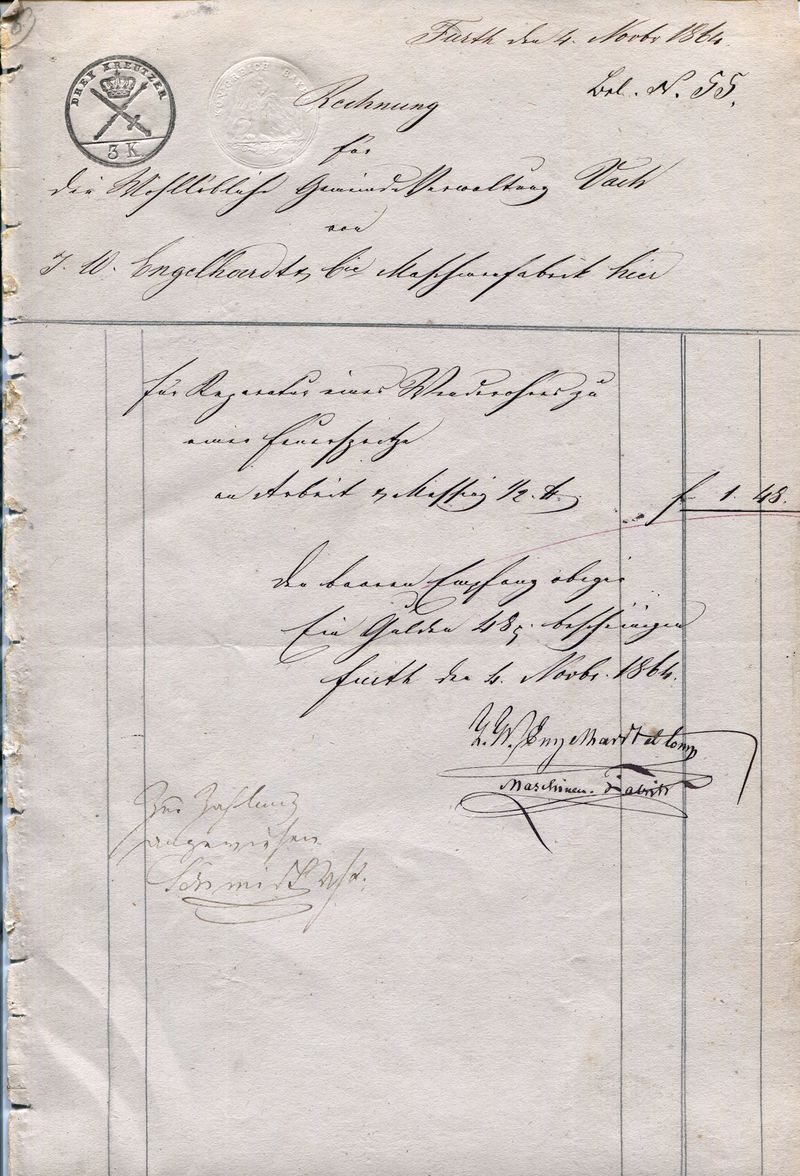 Fürth den 4. Novbr 1864.
DREY KREUTZER
3 K.
KÖNIGREICH BAYERN
Bel. N. 55.
Rechnung
für
die Wohllöbliche Gemeinde Verwaltung Vach
von
J. W. Engelhardt & Cie Maschinenfabrik hier
für Reparatur eines Wenderohres zu
einer Feuerspritze
an Arbeit & Messing 1/2 ℔
f 1. 48.
den baaren Empfang obiger
Ein Gulden 48 x bescheinigen
Fürth den 4. Novbr. 1864.
J. W. Engelhardt & Comp
Maschinen-Fabrik
Zur Zahlung
angewiesen
Schmidt